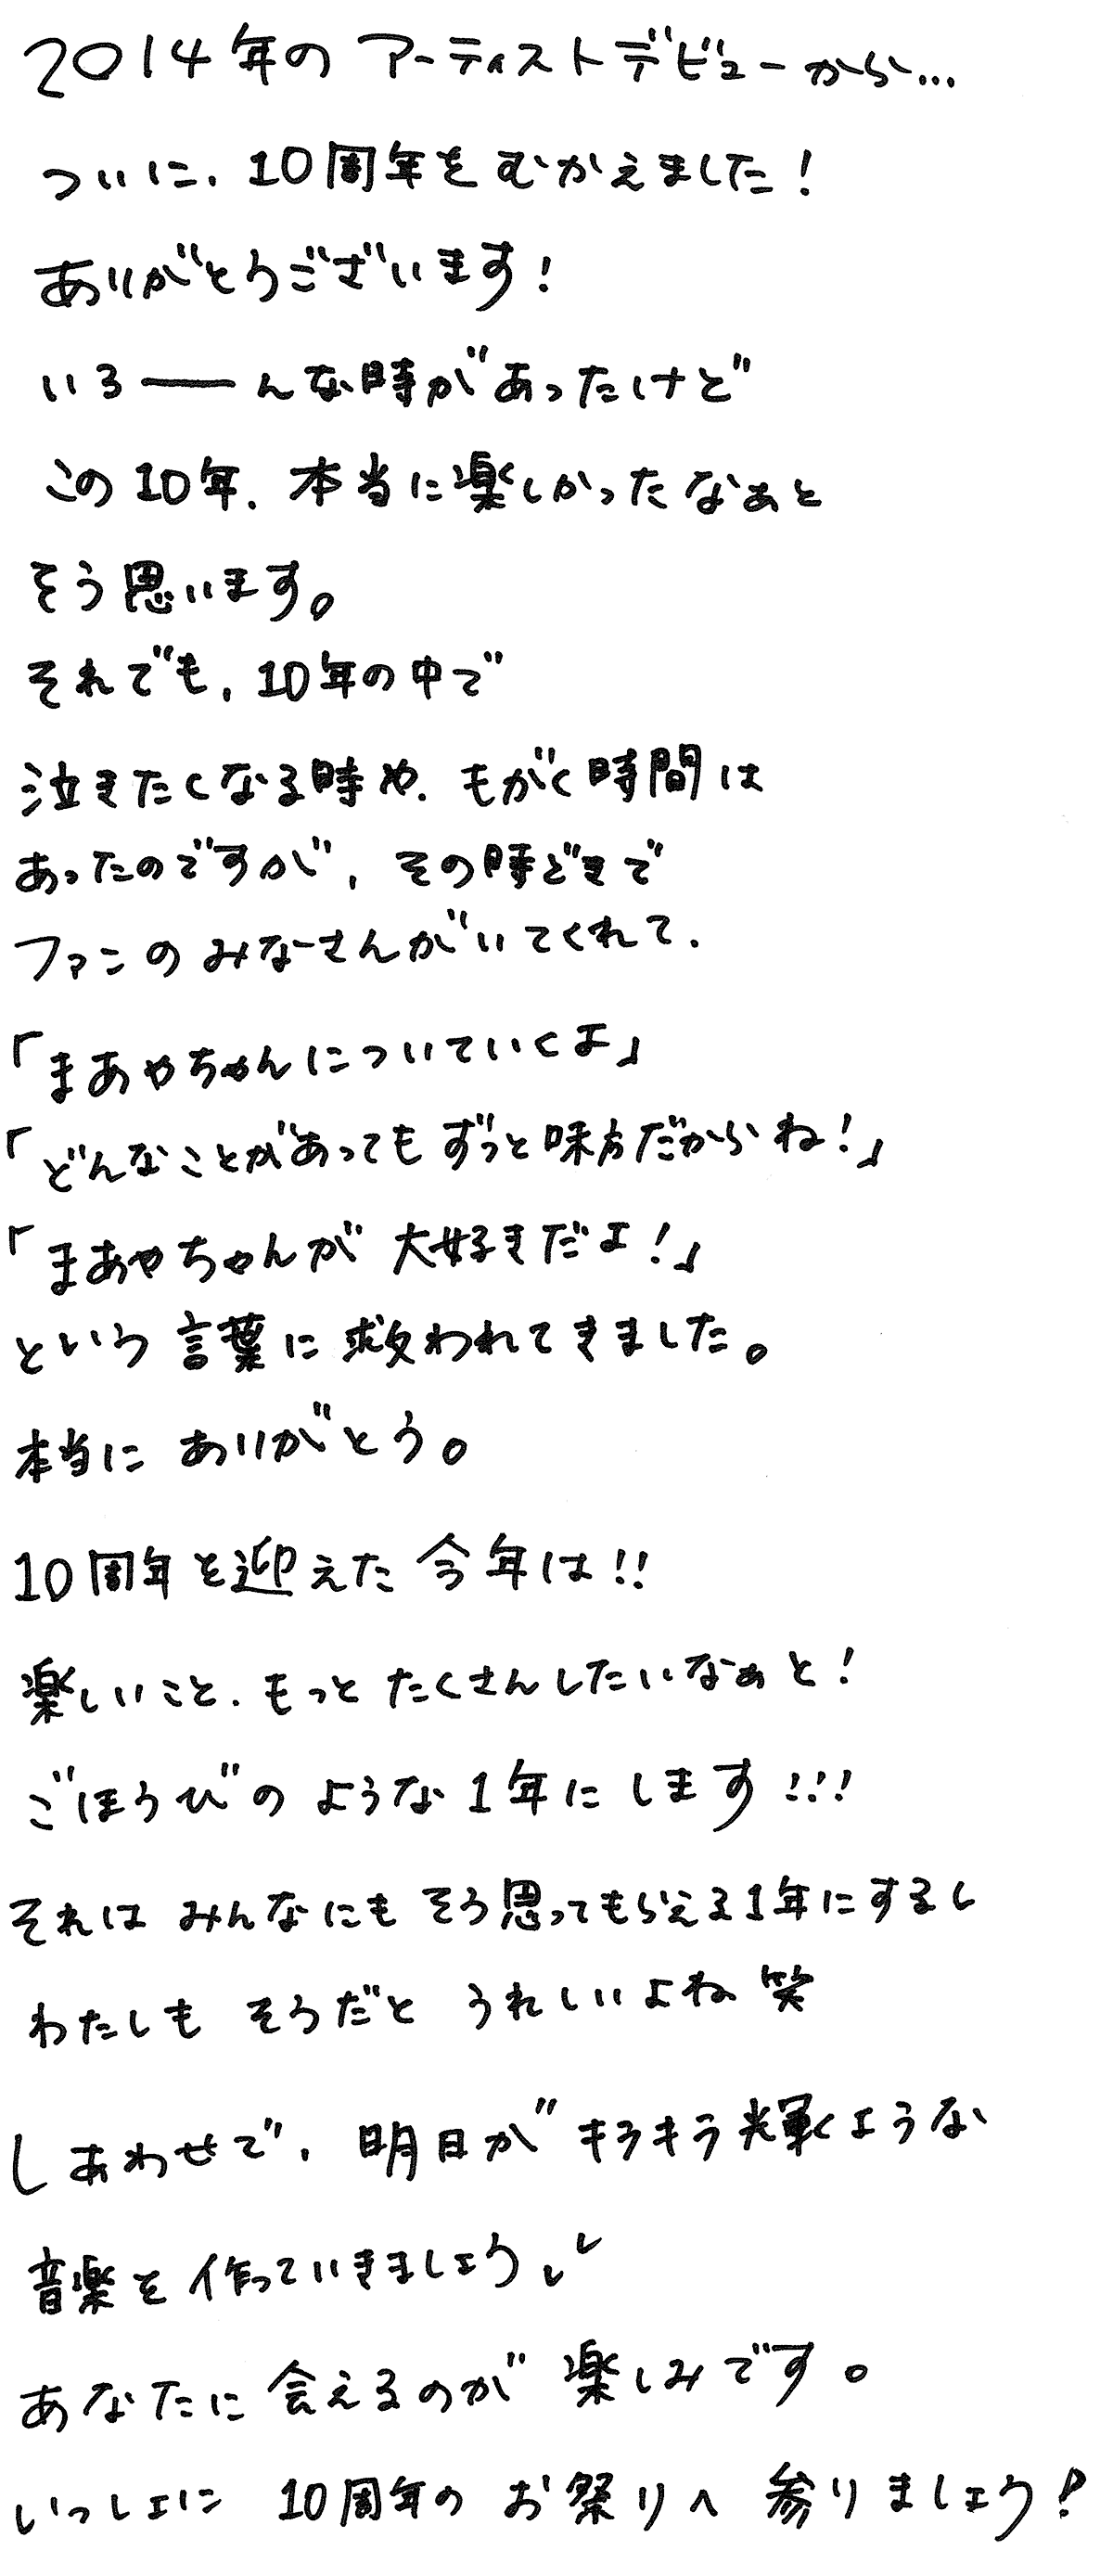 2014年の アーティストデビューから...
ついに、10周年をむかえました!
ありがとうございます!
いろーんな時があったけど
この10年、本当に楽しかったなぁと
そう思います。
それでも、10年の中で
泣きたくなる時や、もがく時間は
あったのですが、その時どきで
ファンのみなさんがいてくれて、
「まあやちゃんについていくよ」
「どんなことがあってもずっと味方だからね!」
「まあやちゃんが 大好きだよ!」
という言葉に救われてきました。
本当に ありがとう。
10周年を迎えた今年は!!
楽しいこと、もっとたくさんしたいなぁと!
ごほうびのような1年にします!!!
それは みんなにも そう思ってもらえる1年にするし
わたしも そうだと うれしいよね 笑
しあわせで、明日がキラキラ輝くような
音楽を作っていきましょう
あなたに会えるのが 楽しみです。
いっしょに 10周年の お祭りへ 参りましょう!